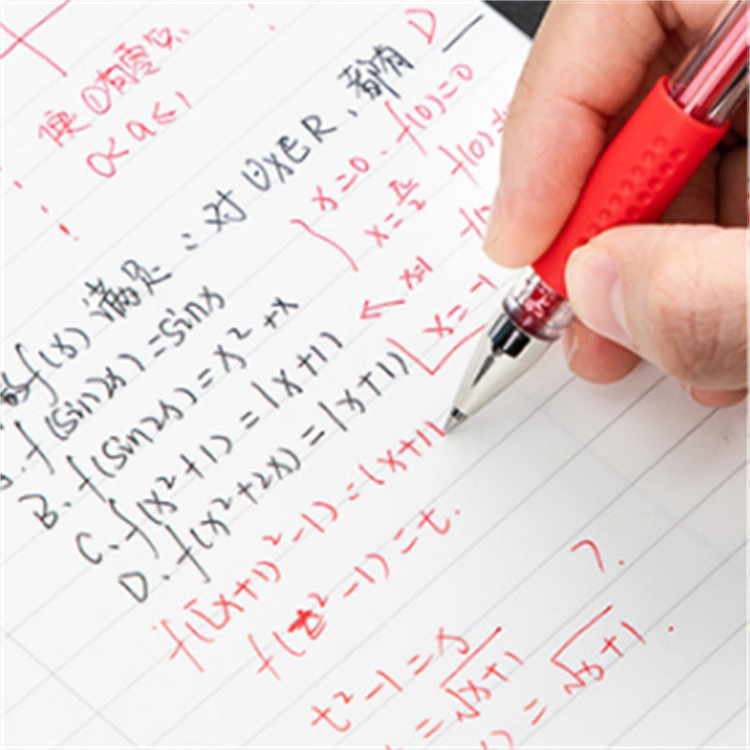 使 0有零点
0<a≤1
f(x) 满足:对 ∀x∈R、都有 D
f(sin2x)=sinx
B. f(sin2x)=x²+x
C. f(x²+1)=|x+1|
D. f(x²+2x)=|x+1|
x=0、f(0)=0
x=π/2 f(0)=
x=1
x=-1
f([x+1)²-1)=(x+1)
f(t²-1)=t.
t²-1=x
=√x+1
)=√x+1.
7.